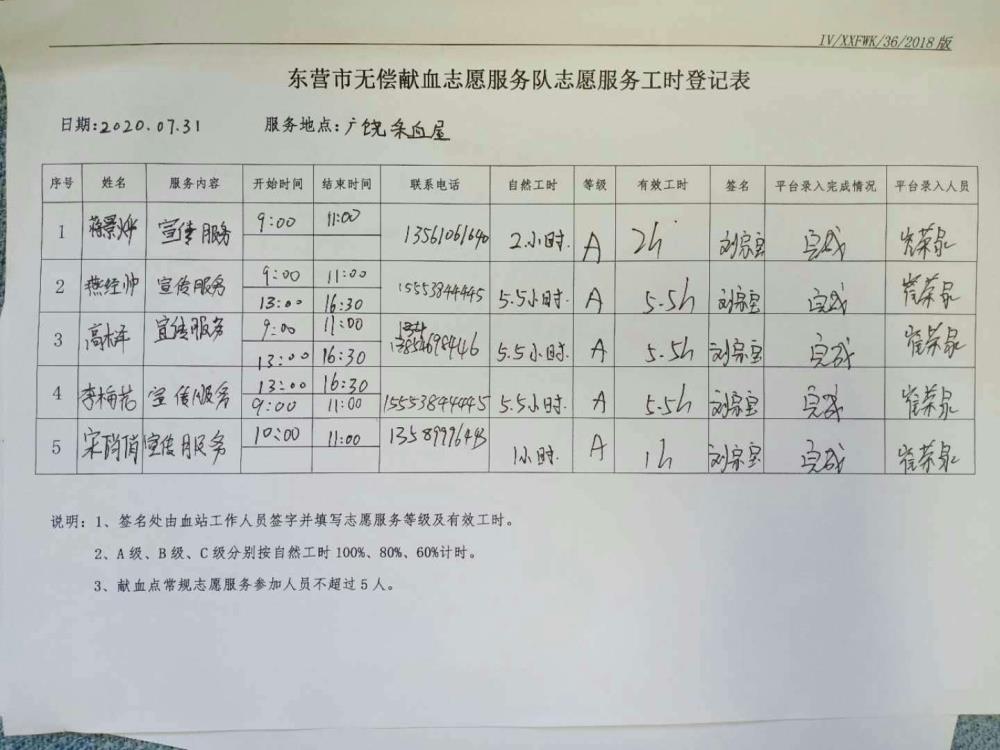 IV/XXFWK/36/2018版
东营市无偿献血志愿服务队志愿服务工时登记表
日期:2020.07.31 服务地点:广饶采血屋
序号 姓名 服务内容 开始时间 结束时间 联系电话 自然工时 等级 有效工时 签名 平台录入完成情况 平台录入人员
1 蒋景烨 宣传服务 9:00 11:00 13561061640 2小时. A 2h 刘宗宝 完成 崔荣泉
2 燕经帅 宣传服务 9:00 11:00 15553844445 5.5小时. A 5.5h 刘宗宝 完成 崔荣泉
13:00 16:30
3 宣传服务 9:00 11:00 5.5小时. A 5.5h 刘宗宝 完成 崔荣泉
13:00 16:30
4 宣传服务 13:00 16:30 15553844445 5.5小时. A 5.5h 刘宗宝 完成 崔荣泉
9:00 11:00
5 宋肖俏 宣传服务 10:00 11:00 1小时. A 1h 刘宗宝 完成 崔荣泉
说明:1、签名处由血站工作人员签字并填写志愿服务等级及有效工时。
2、A级、B级、C级分别按自然工时100%、80%、60%计时。
3、献血点常规志愿服务参加人员不超过5人。